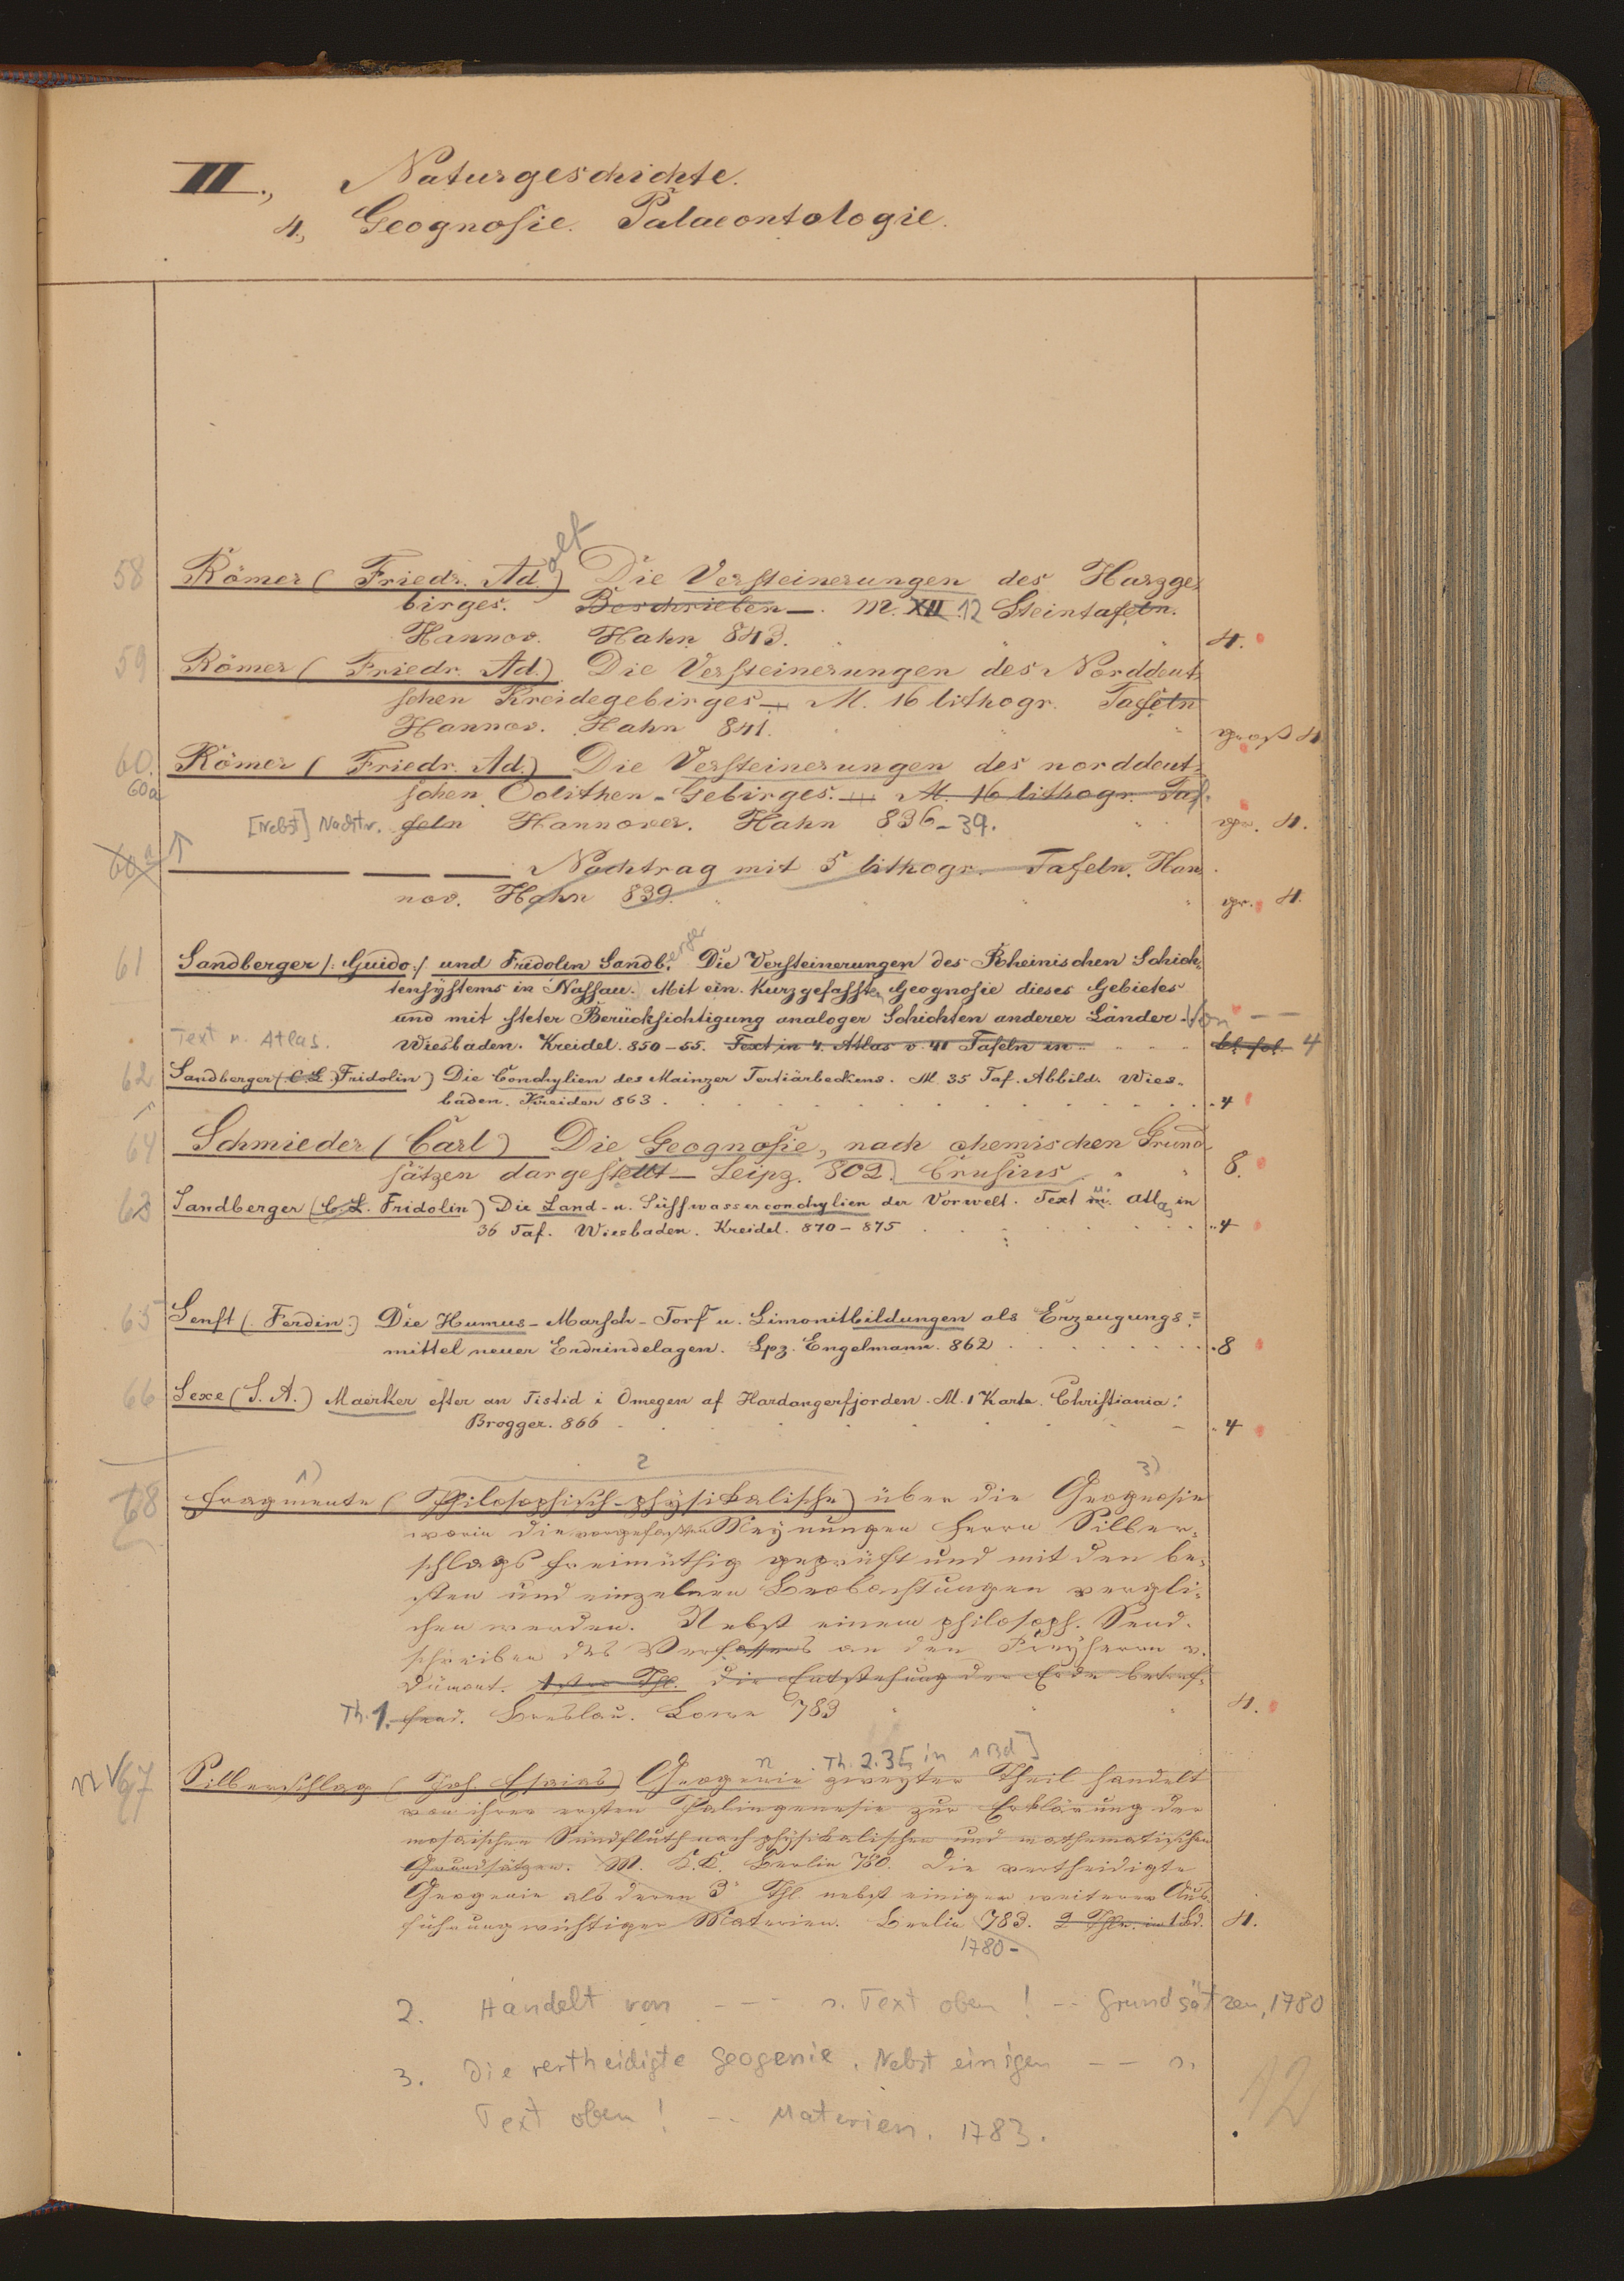 II., Naturgeschichte.
4., Geognosie. Palaeontologie.
58 Römer ( Friedr. Ad.) olf Die Versteinerungen des Harzge-
birges. Beschrieben —. M. XII. 12 Steintafeln.
Hannov. Hahn 843. 4.
59 Römer ( Friedr. Ad.) Die Versteinerungen des Norddeut-
schen Kreidegebirges — M. 16 lithogr. Tafeln
Hannov. Hahn 841. groß 4
60. Römer ( Friedr. Ad.) Die Versteinerungen des norddeut-
60a schen Oolithen-Gebirges. — M. 16 lithogr. Taf-
[Nebst] Nachtr. feln Hannover. Hahn 836-39. gr. 4.
60a — — — Nachtrag mit 5 lithogr. Tafeln. Han
nov. Hahn 839. gr. 4.
61 Sandberger /: Guido :/ und Fridolin Sandb. erger Die Versteinerungen des Rheinischen Schich-
tensystems in Nassau. Mit ein. kurzgefassten Geognosie dieses Gebietes
und mit steter Berücksichtigung analoger Schichten anderer Länder. Von — —
Text u. Atlas. Wiesbaden. Kreidel. 850-55. Text in 4. Atlas v. 41 Tafeln in kl. fol. 4
62 Sandberger (C. L. Fridolin) Die Conchylien des Mainzer Tertiärbeckens. M. 35 Taf. Abbild. Wies-
baden. Kreider 863. 4
64 Schmieder ( Carl) Die Geognosie, nach chemischen Grund-
sätzen dargestellt — Leipz. 802. Crusius. 8.
63 Sandberger (C. L. Fridolin) Die Land- u. Süsswasserconchylien der Vorwelt. Text u. Atlas in
36 Taf. Wiesbaden. Kreidel. 870-875 4
65 Senft (Ferdin.) Die Humus- Marsch- Torf u. Limonitbildungen als Erzeugungs-
mittel neuer Erdrindelagen. Lpz. Engelmann. 862 8
66 Sexe (S. A.) Maerker efter an Tistid i Omegen af Hardangerfjorden. M. 1 Karte. Christiania:
Brogger. 866 4
1) 2 3)
68 Fragmente ( Philosophisch-physikalische) über die Geognosie
worin die vorgefaßten Meynungen Herrn Silber-
schlags freimüthig geprüft und mit den be-
sten und einzelnen Beobachtungen vergli-
chen werden. Nebst einem philosoph. Send-
schreiben des Verfassers an den Freyherrn v.
Dümont. 1ster Thl. die Entstehung der Erde betref-
Th. 1. fend. Breslau. Löwe 783 4.
n. Th. 2.3 [in 1 Bd]
n v 67 Silberschlag ( Joh. Esaias) Geogenie zweyter Theil handelt
von ihrer ersten Palingenesie zur Erklärung der
mosaischen Sündfluth nach physikalischen und mathematischen
Grundsätzen. M. K.K. Berlin 780. Die vertheidigte
Geogenie als deren 3r Thl. nebst einiger weiteren Aus-
führung wichtiger Materien. Berlin 783. 2 Thle. in 1 Bd. 4.
1780-
2. Handelt von --- s. Text oben! -- Grundsätzen, 1780
3. Die vertheidigte Geogenie. Nebst einigen -- s.
Text oben! -- Materien. 1783.
42